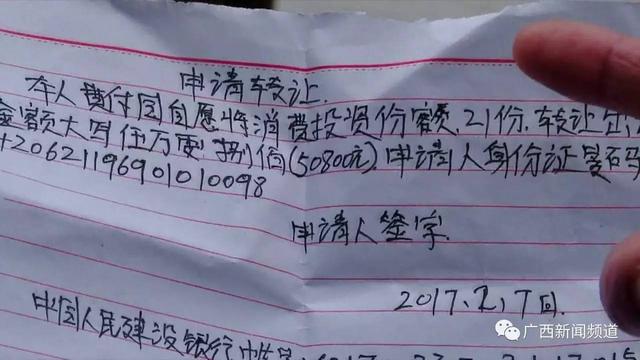 申请转让.
本人費付国自愿将消费投资份额.21份.转让
金额大写伍万零捌佰(50800元)申请人身份证号码
420621196901010098
申请人签字.
2017.2.7日.
中国人民建设银行
广西新闻频道